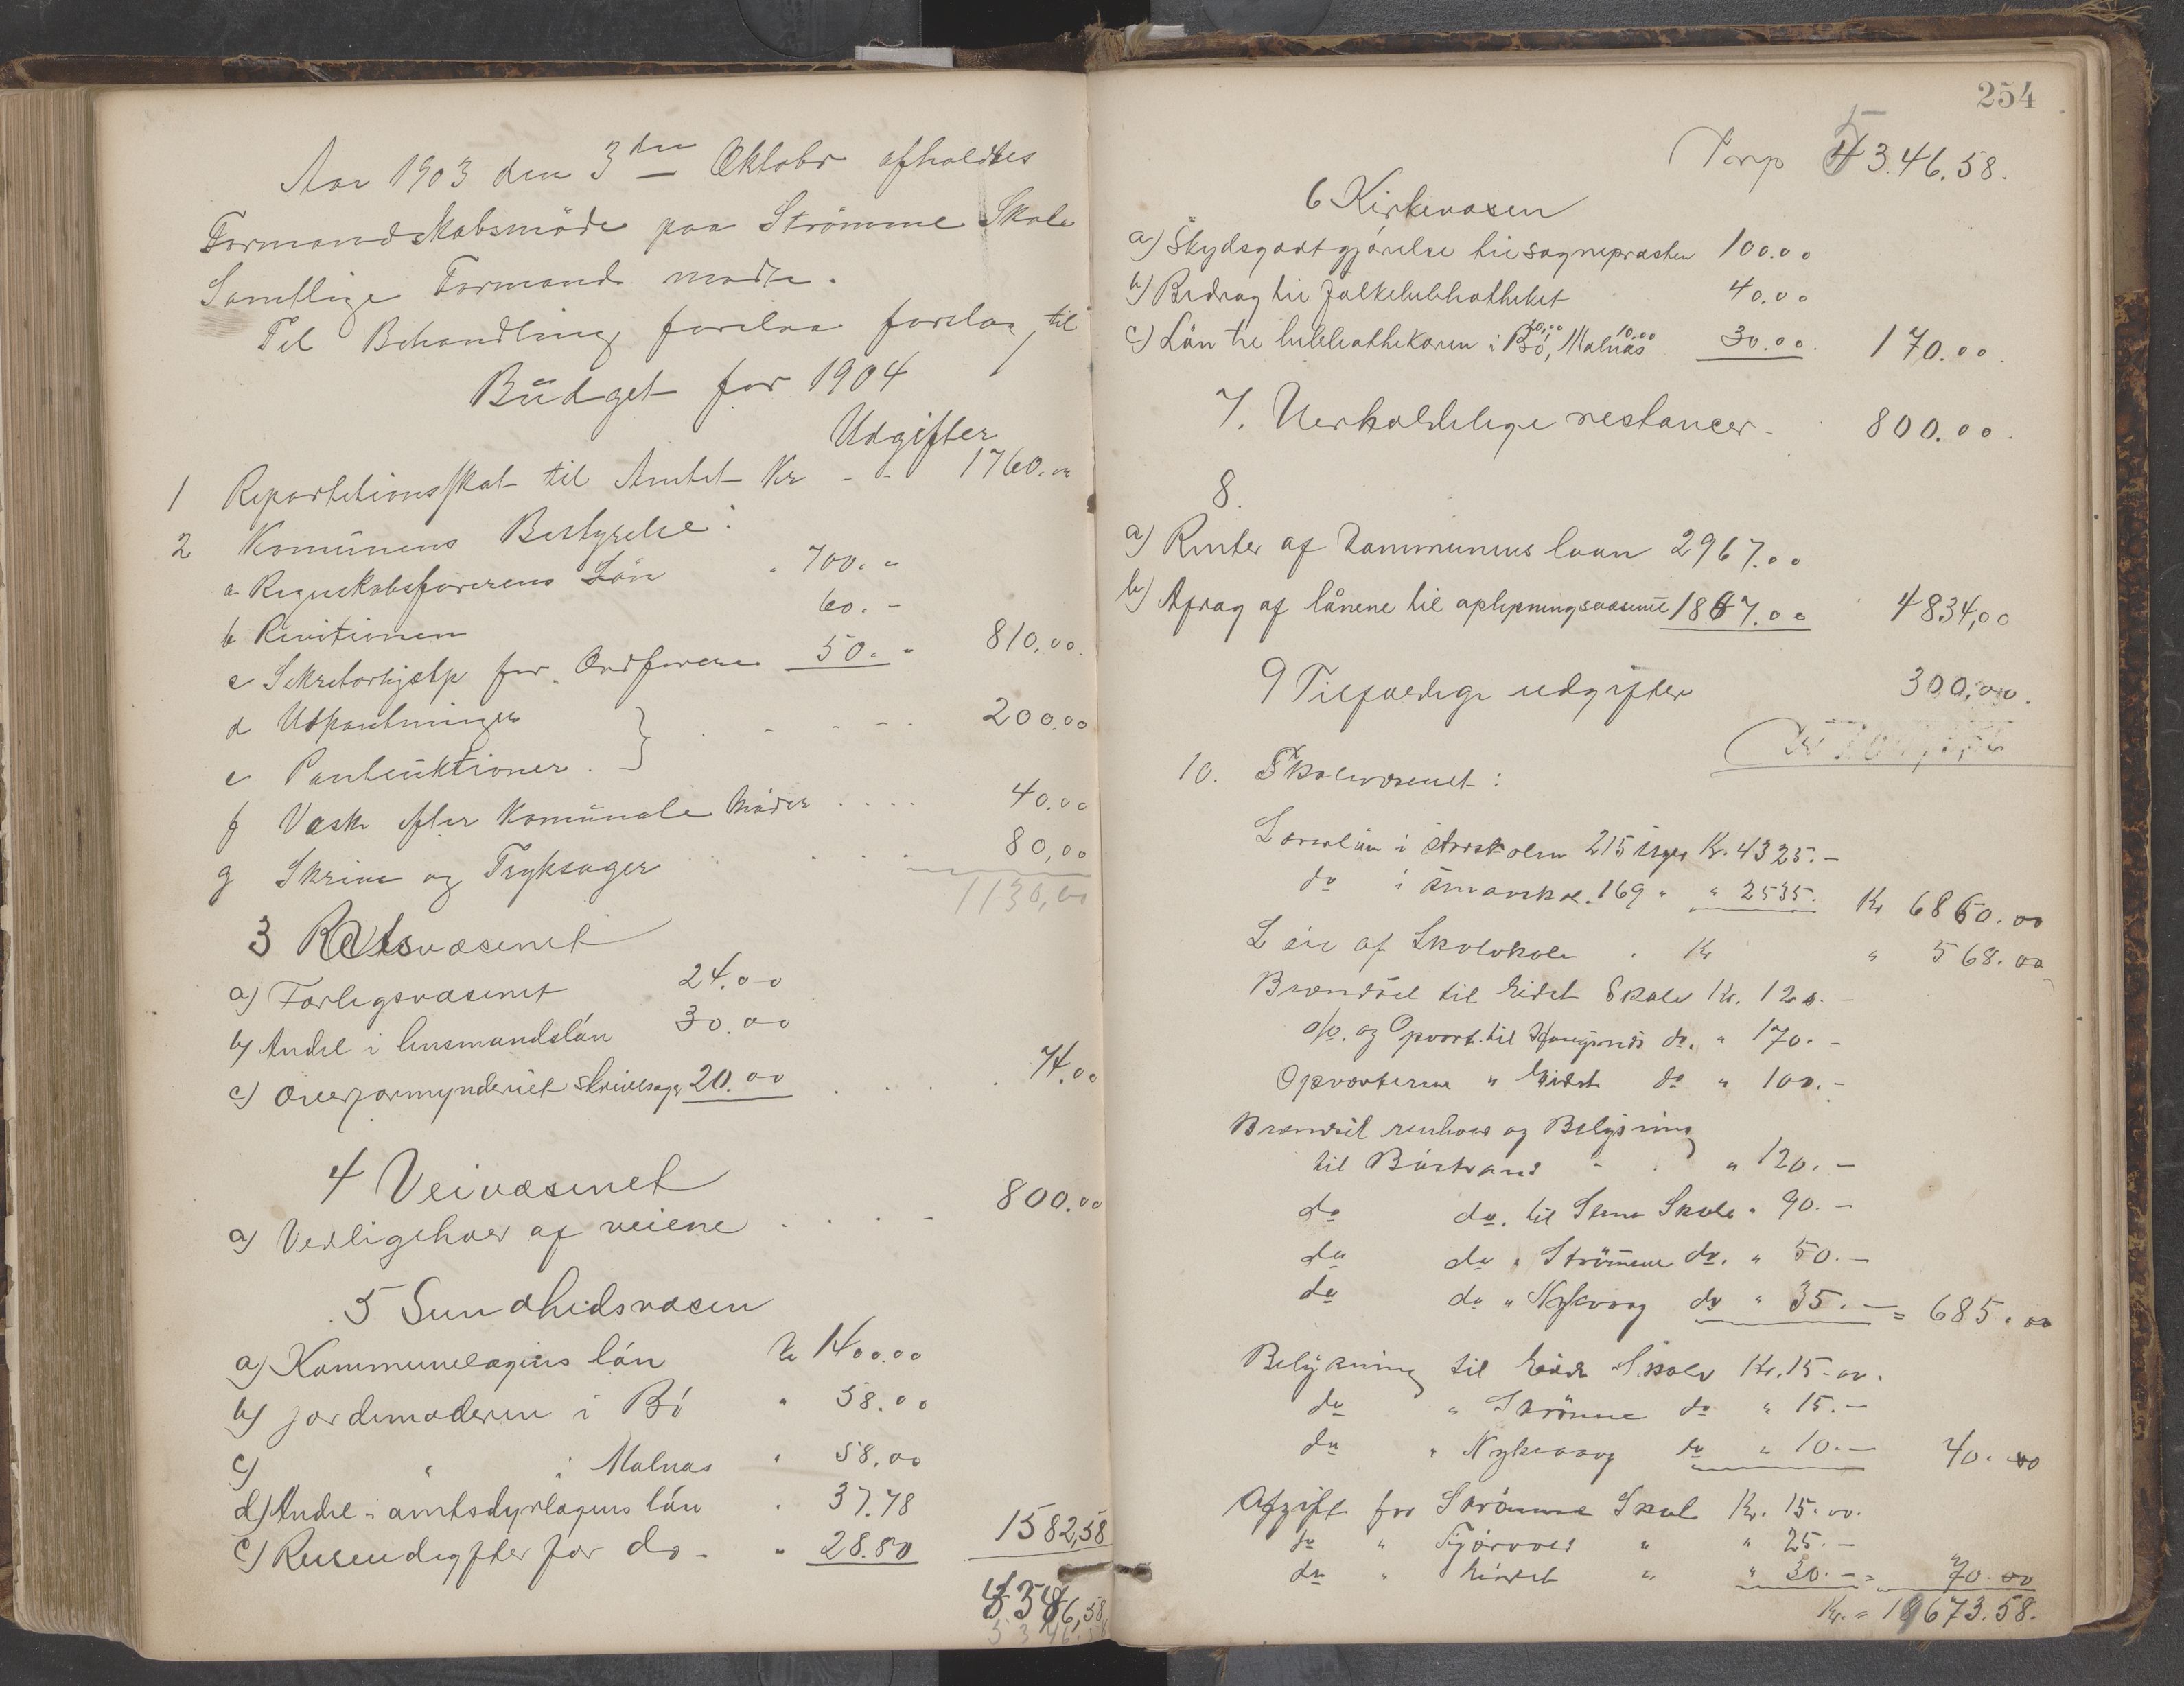 Aar 1903 den 3den Oktobr afholdtes
Formandskabsmöde paa Strömme Skole
Samtlige Formænd mødte.
Til Behandling forelaa forslag til
Büdget for 1904
Udgifter
1 Repartitionsskat til Amtet Kr - - 1760.00
2 Komünens Bestyrelse:
a Regnskabsførerens Lön " 700. "
b Revitionen 60. -
c Sekretærhjælp for Ordføreren 50. " 810,00.
d Udpantninger
e Pantauktioner. } . - - - . 200.00
f Vask efter Komünale Möder . . . . 40.00
g Skrive og Tryksager . . . 80,00
1130,00
3 Retsvæsenet
a) Forligsvæsenet 24.00
b) Andel i lensmandslön 30.00
c) Overformynderiet skrivesager 20.00 . . . . 74.00
4 Veivæsenet
a) Vedligehold af veiene . . . - 800.00
5 Sundhedsvæsen
a) Kommunelægens lön Kr 1400.00
b) jordemoderen i Bö " 58.00
c) " i Malnæs " 58.00
d) Andel i amtsdyrlægens lön " 37.78
e) Reiseudgifter for do - " 28.80 1582,58
5346,58
5346.58
254
Transp 5346.58.
6 Kirkevæsen
a) Skydsgodtgjörelse til sognepræsten 100.00
b) Bidrag til folkebibliotheket 40.00
c) Lön til bibliothekaren i Bö, 20,00 Malnæs 10.00 30.00. 170.00.
7. Uerholdelige restancer - 800.00.
8.
a) Renter af kommunens laan 2967.00
b) Afdrag af lånene til oplysningsvæsenet 1867.00 4834,00
9 Tilfældige udgifter 300,00.
10. Skolevæsenet:
Lærerlön i storskolen 215 Uger Kr. 4325. -
do i smaaskol. 169 " " 2535. Kr 6860.00
Leie af Skolelokale . Kr " 568.00
Brændsel til Eidet Skole Kr. 120. -
do. og Opvart. til do. " 170. -
Opvarteren " Eidet do " 100. -
Brændsel renhold og Belysning
til Böstrand - . " 120. -
do do. til Stene Skole " 90. -
do do " Strömme do. " 50. -
do do " Nykvaag do " 35. - = 685.00
Belysning til Eidet Skole Kr. 15.00.
do " Strömme do " 15. -
do " Nykvaag do " 10. - 40.00
Afgift for Strömme Skole Kr. 15.00.
do " Fjærvoll " " 25. -
do " Eidet " " 30. - = 70.00
Kr. = 19673.58.